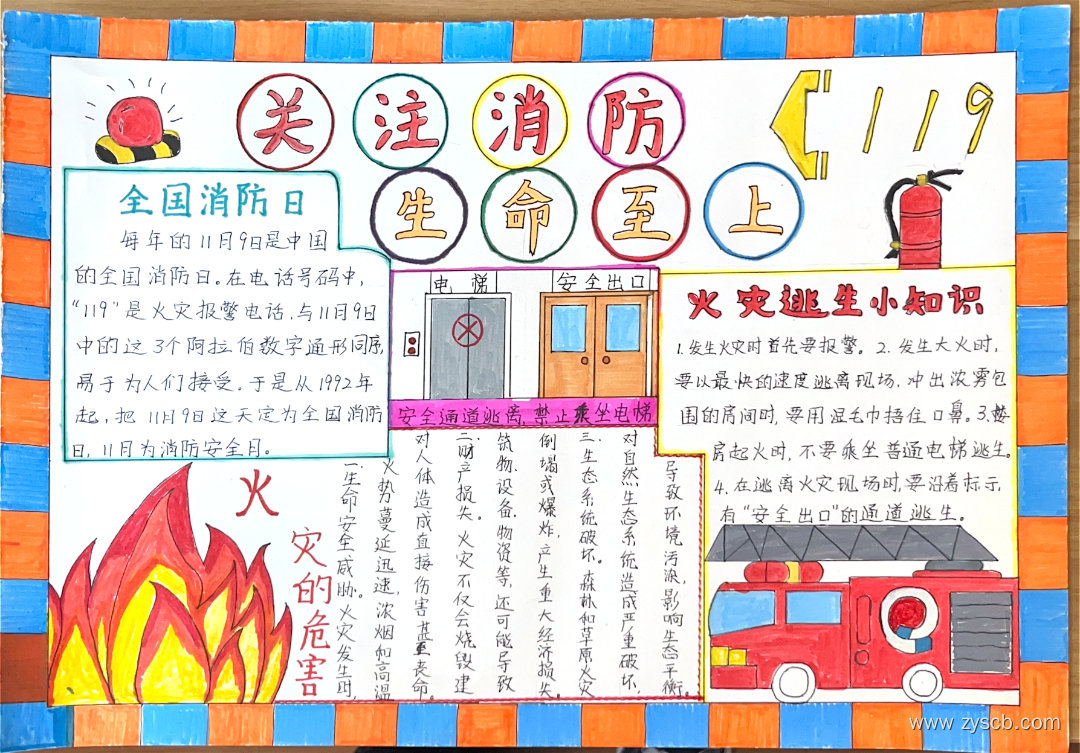 关注消防
119
生命至上
全国消防日
每年的11月9日是中国
的全国消防日。在电话号码中,
“119”是火灾报警电话,与11月9日
中的这3个阿拉伯数字通形同序,
易于为人们接受。于是从1992年
起,把11月9日这天定为全国消防
日,11月为消防安全月。
电梯
安全出口
安全通道逃离,禁止乘坐电梯
火灾逃生小知识
1.发生火灾时首先要报警。2.发生大火时,
要以最快的速度逃离现场,冲出浓雾包
围的房间时,要用湿毛巾捂住口鼻。3.楼
房起火时,不要乘坐普通电梯逃生。
4.在逃离火灾现场时,要沿着标示,
有“安全出口”的通道逃生。
火灾的危害
一.生命安全威胁。火灾发生时,
火势蔓延迅速,浓烟和高温
对人体造成直接伤害甚至丧命。
二.财产损失。火灾不仅会烧毁建
筑物、设备、物资等,还可能导致
倒塌或爆炸,产生重大经济损失。
三.生态系统破坏。森林和草原火灾
对自然生态系统造成严重破坏,
导致环境污染,影响生态平衡。
www.zyscb.com